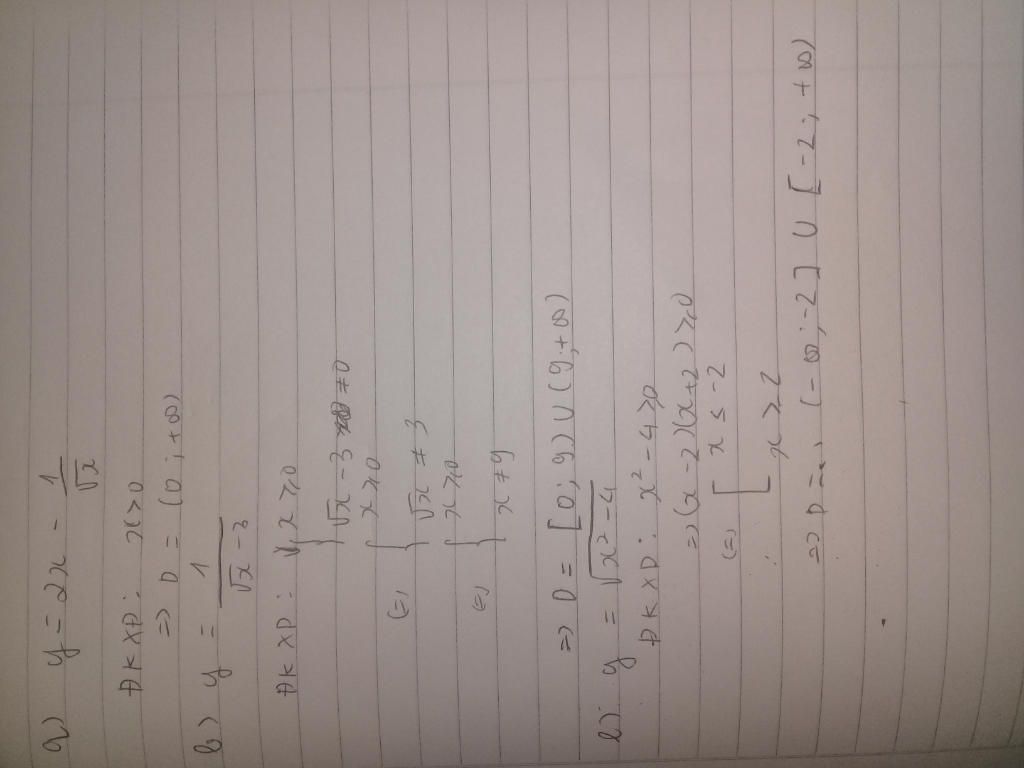 a) y = 2x - 1/√x
ĐKXĐ: x > 0
=> D = (0; +∞)
b) y = 1/(√x - 3)
ĐKXĐ: { x ≥ 0
√x - 3 ≠ 0
(=) { x ≥ 0
√x ≠ 3
(=) { x ≥ 0
x ≠ 9
=> D = [0; 9) ∪ (9, +∞)
y = √(x² - 4)
ĐKXĐ: x² - 4 ≥ 0
=> (x - 2)(x + 2) ≥ 0
(=) [ x ≤ -2
x ≥ 2
=> D = (-∞; -2] ∪ [-2; +∞)